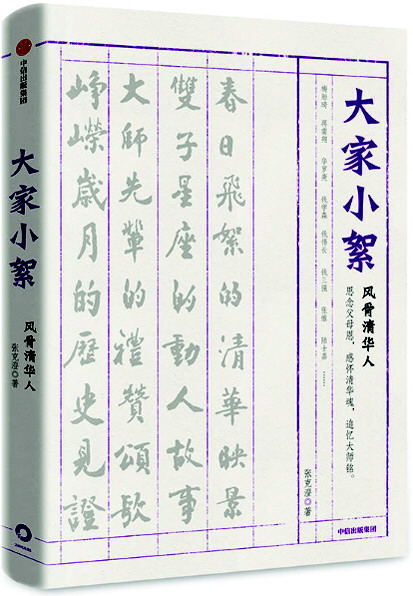 中信出版集团
大家小絮
风骨清华人
张克澄◎著
大家小絮
风骨清华人
恩念父母恩，感怀清华魂，追忆大师铭。
梅贻琦 蒋南翔 华罗庚 钱学森 钱伟长 钱三强 张维 陆士嘉 ……
春日飛絮的清華映景
雙子星座的動人故事
大師先輩的禮贊頌歌
崢嶸歲月的歷史見證
张克澄◎著
中信出版集团